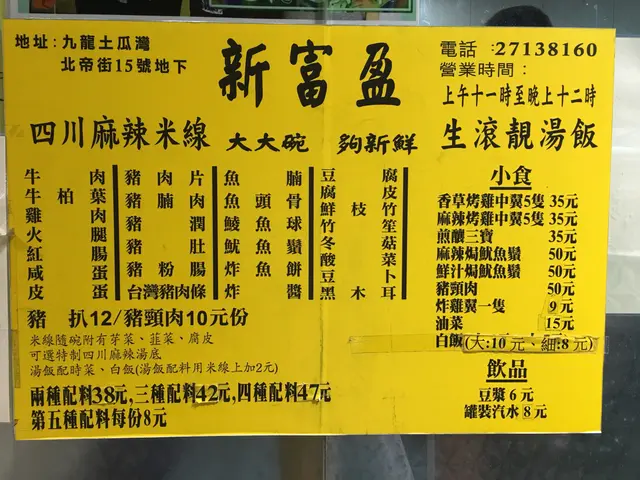 地址：九龍土瓜灣
北帝街15號地下
新富盈
電話：27138160
營業時間：
上午十一時至晚上十二時
四川麻辣米線 大大碗 夠新鮮
生滾靚湯飯
牛肉
牛柏葉
雞肉
火腿
紅腸
咸蛋
皮蛋
豬肉片
豬腩肉
豬潤
豬肚
豬粉腸
台灣豬肉條
魚腩
魚頭骨
鯪魚球
魷魚鬚
炸魚餅
炸醬
豆腐
腐皮
鮮枝竹
竹笙
冬菇
酸菜
豆卜
黑木耳
豬扒12/豬頸肉10元份
米線隨碗附有芽菜、韮菜、腐皮
可選特制四川麻辣湯底
湯飯配時菜、白飯(湯飯配料用米線上加2元)
兩種配料38元,三種配料42元,四種配料47元
第五種配料每份8元
小食
香草烤雞中翼5隻 35元
麻辣烤雞中翼5隻 35元
煎釀三寶 35元
麻辣焗魷魚鬚 50元
鮮汁焗魷魚鬚 50元
豬頸肉 50元
炸雞翼一隻 9元
油菜 15元
白飯(大:10元、細:8元)
飲品
豆漿6元
罐裝汽水8元